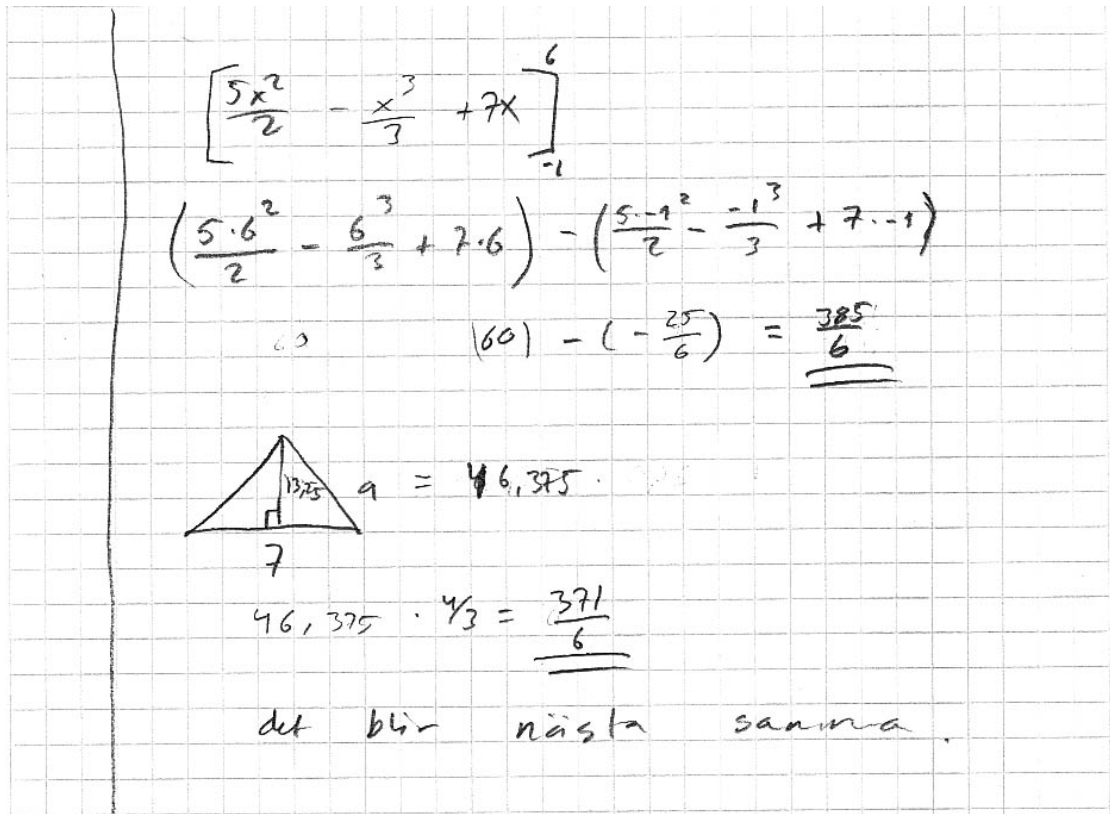 [5x²/2 - x³/3 + 7x]₋₁⁶
(5·6²/2 - 6³/3 + 7·6) - (5·-1²/2 - -1³/3 + 7·-1)
(60) - (-25/6) = 385/6
13,25 a = 46,375
7
46,375 · 4/3 = 371/6
det blir nästa samma.